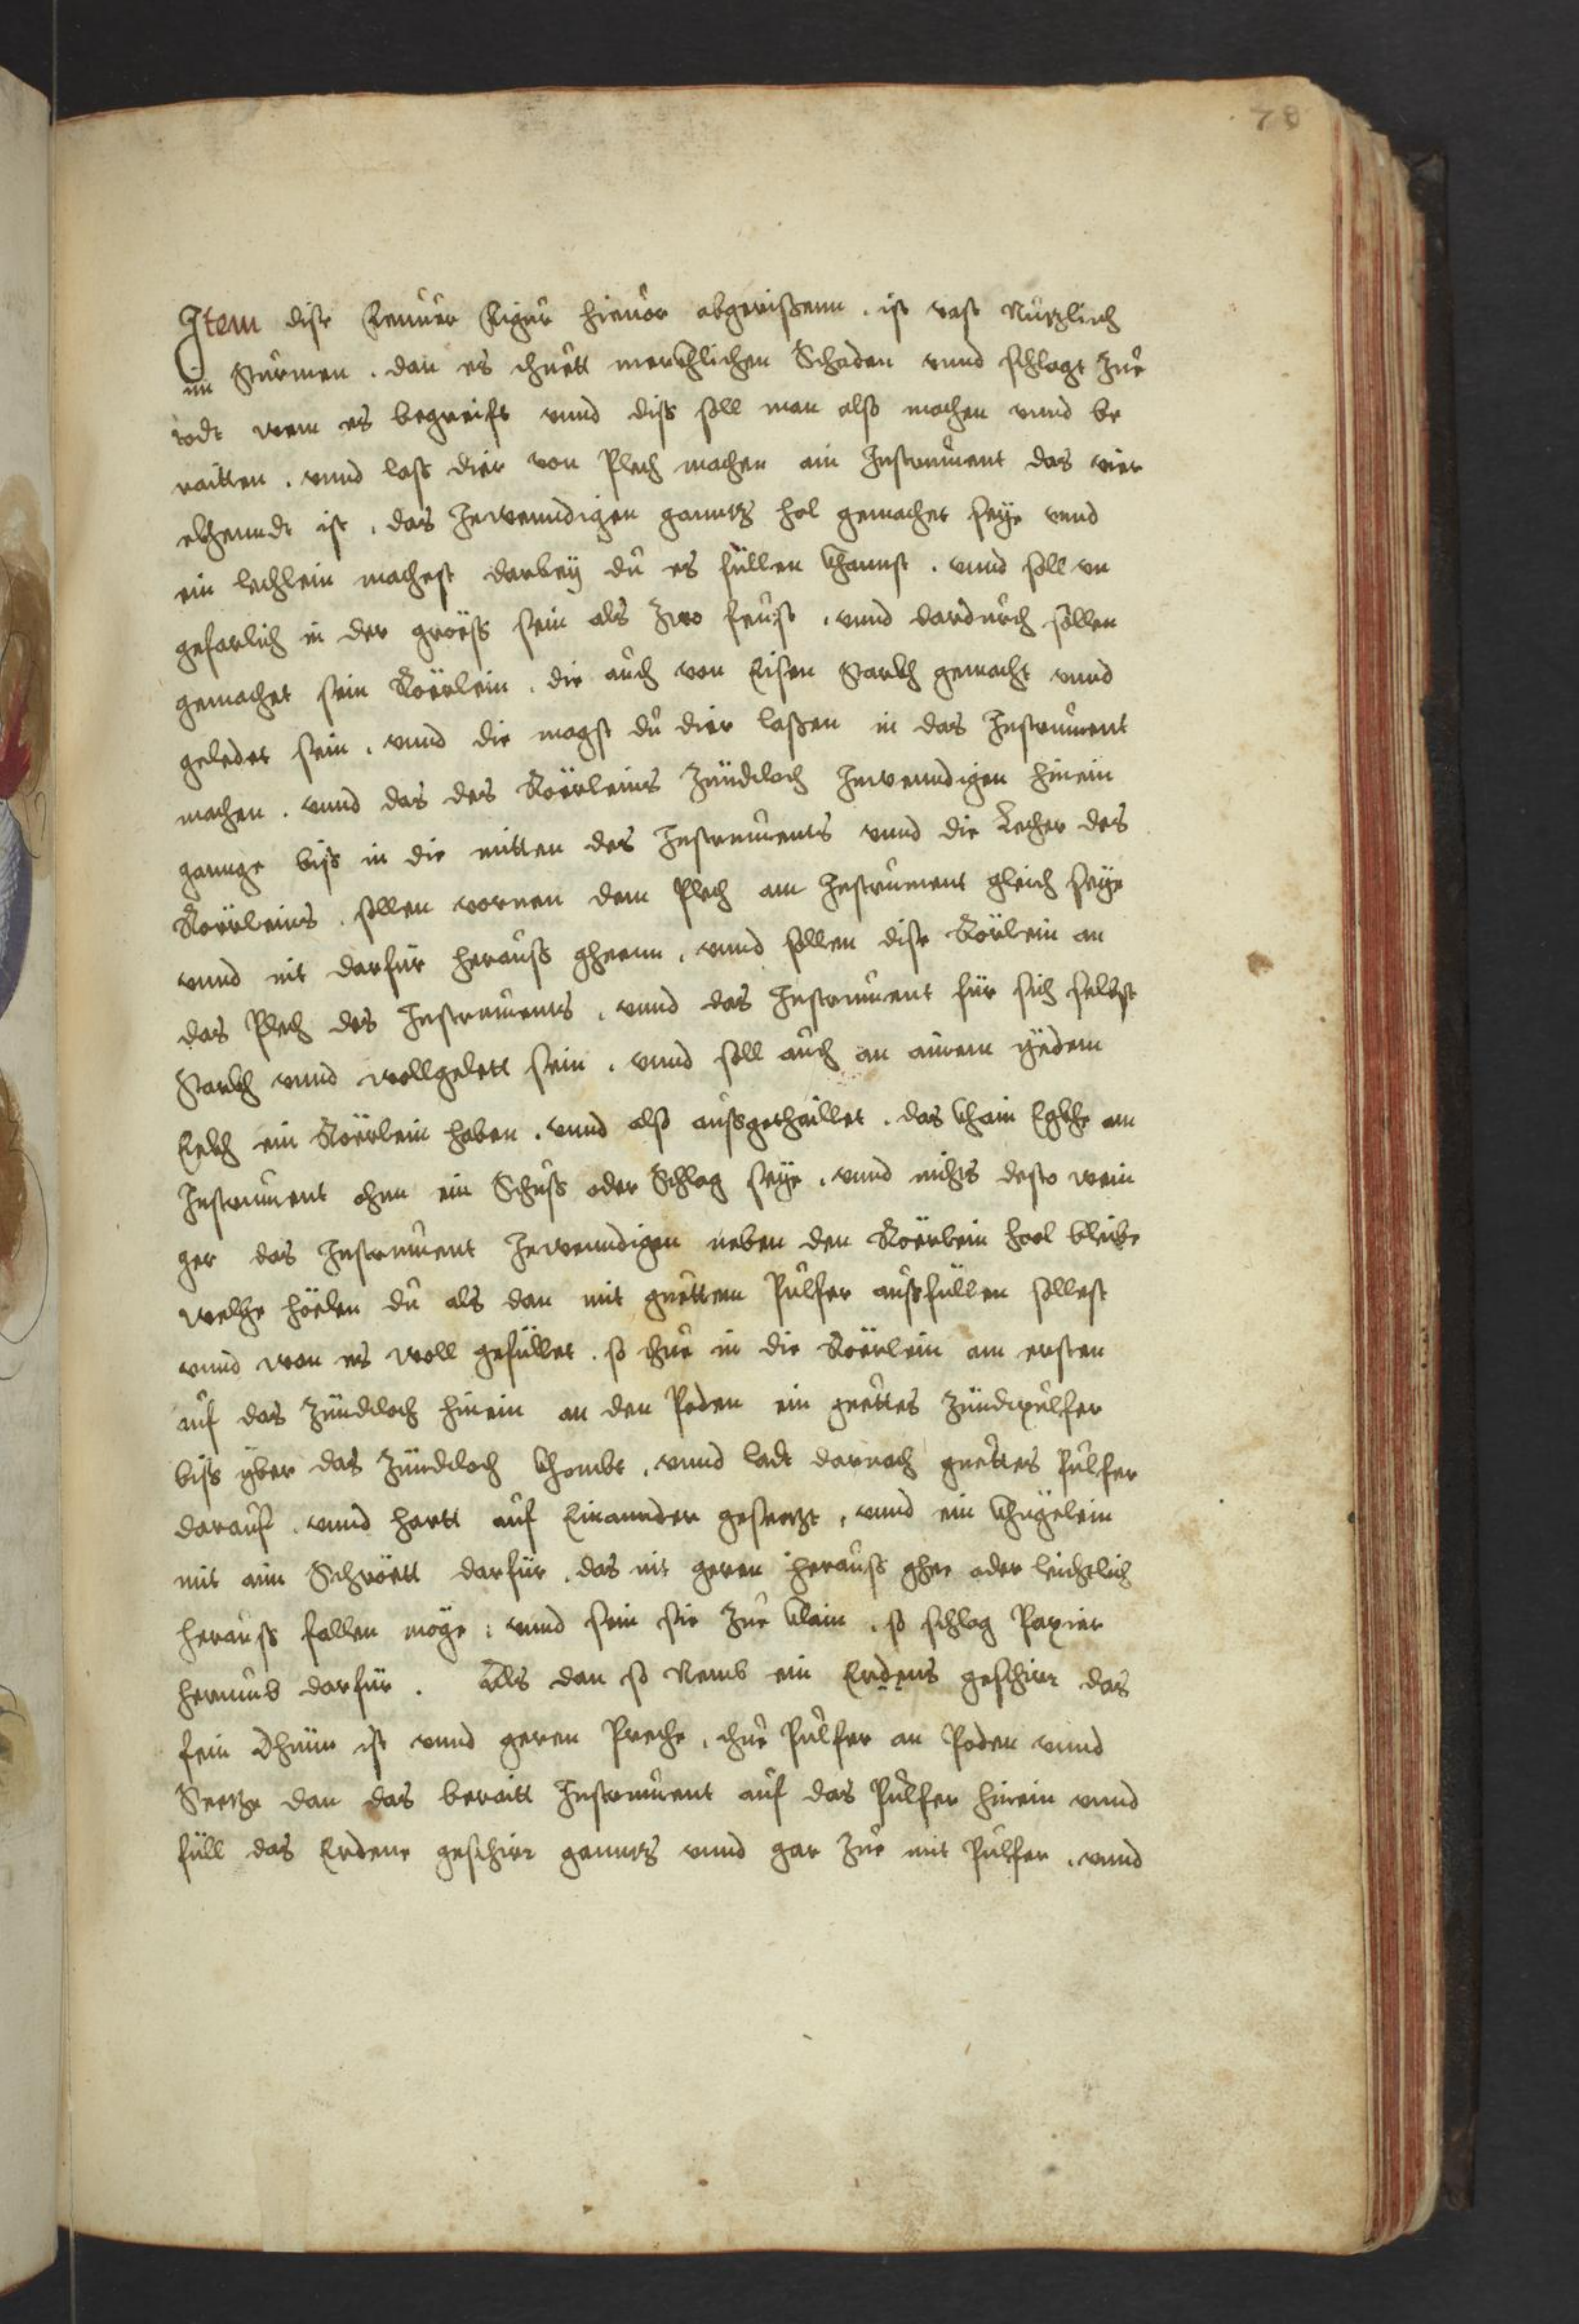 70
Item dise Feuer Figur hieuor abgerissenn . ist vast Nutzlich
im Sturmen . dan es thuett merckhlichen Schaden vnnd schlagt zue
todt wem es begreift vnnd diss soll man also machen vnnd be
raitten . vnnd lass dier von Plech machen ain Instrument das vier
ekhenndt ist . das Inwenndigen ganntz hol gemachet seye vnnd
ein lechlein machest darbey du es füllen khannst . vnnd soll vn
gefarlich in der gröess sein als zwo feust . vnnd dardurch sollen
gemachet sein Röerlein . die auch von Eisen starkh gemacht vnnd
geledet sein . vnnd die magst du dier lassen in das Instrument
machen . vnnd das des Röerleins Zündtloch Inwenndigen hinein
gannge biss in die mitten des Instruments vnnd die Lecher des
Röerleins . sollen vornen dem Plech am Instrument gleich seye
vnnd nit darfür herauss gheenn . vnnd sollen dise Rörlein an
das Plech des Instruments . vnnd das Instrument für sich selbst
Starkh vnnd wollgelett sein . vnnd soll auch an ainem yedem
Eekh ein Röerlein haben . vnnd also aussgethaillet . das khain Eghe am
Instrument ohnn ein Schuss oder Schlag seye . vnnd nichts desto wein
ger das Instrument Inwenndigen neben den Röerlein hool bleibe
welche höelen du als dan mit guettem Pulfer aussfüllen sollest
vnnd wan es woll gefüllet . so thue in die Röerlein am ersten
auf das Zündtloch hinein an den Poden ein guettes Zündtpulfer
biss yber das Zündtloch khombt . vnnd ladt darnach guettes Pulfer
darauf . vnnd hartt auf Einannder gesetzt . vnnd ein khugelein
mit aim Schröett darfür . das nit geren herauss ghee oder leichtlich
herauss fallen möge : vnnd sein sie zue klain . so schlag Papier
herumb darfür . Als dan so Nemb ein Erdens geschirr das
fein dhünn ist vnnd geren Preche . thue Pulfer an Poden vnnd
Seetze dan das beraitt Instrument auf das Pulfer hinein vnnd
füll das Erdene geschirr ganntz vnnd gar zue mit Pulfer . vnnd